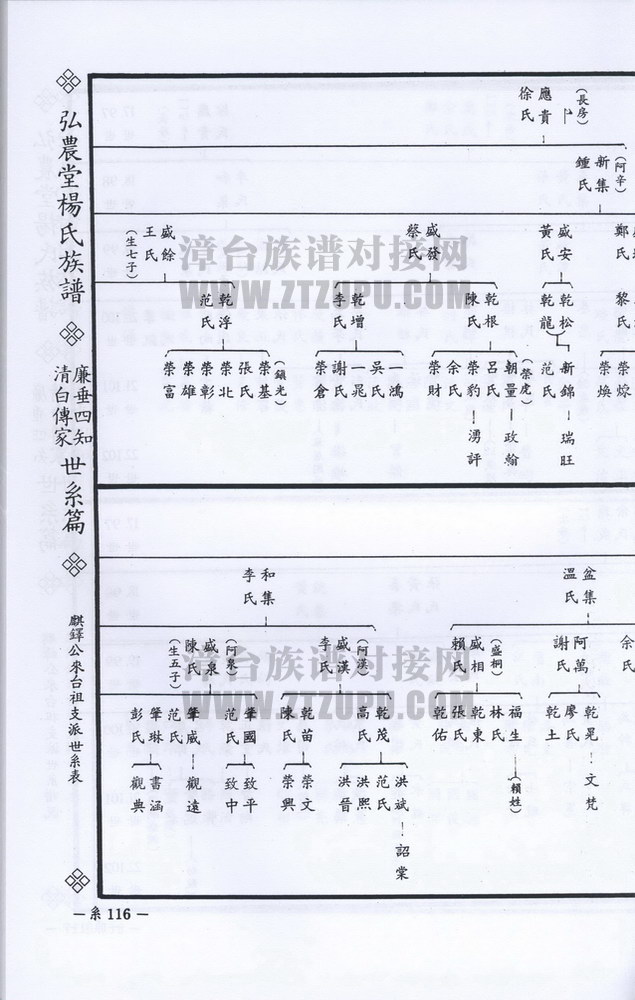 弘農堂楊氏族譜
廉垂四知
清白傳家
世系篇
麒鐸公來台祖支派世系表
(長房)
應貴
徐氏
(阿辛)
新集
鍾氏
鄭氏
盛安
黃氏
盛發
蔡氏
盛餘
王氏
(生七子)
黎氏
乾松
乾龍
乾根
陳氏
乾增
李氏
乾浮
范氏
榮煥
新錦
瑞旺
范氏
(榮虎)
朝量
政翰
呂氏
榮豹
湧評
余氏
榮財
一鴻
吳氏
一晁
謝氏
榮倉
(鎮光)
榮基
張氏
榮北
榮彰
榮雄
榮富
盆集
溫氏
和集
李氏
余氏
阿萬
謝氏
(盛桐)
盛相
賴氏
(阿漢)
盛漢
李氏
(阿泉)
盛泉
陳氏
(生五子)
乾晃
文梵
廖氏
乾土
福生
(賴姓)
林氏
乾東
張氏
乾佑
乾茂
高氏
乾苗
陳氏
肇國
范氏
肇威
范氏
肇琳
彭氏
洪斌
詔棠
范氏
洪熙
洪晉
榮文
榮興
致平
致中
觀遠
書涵
觀典
漳台族谱对接网
WWW.ZTZUPU.COM
漳台族谱对接网
WWW.ZTZUPU.COM
－系 116－